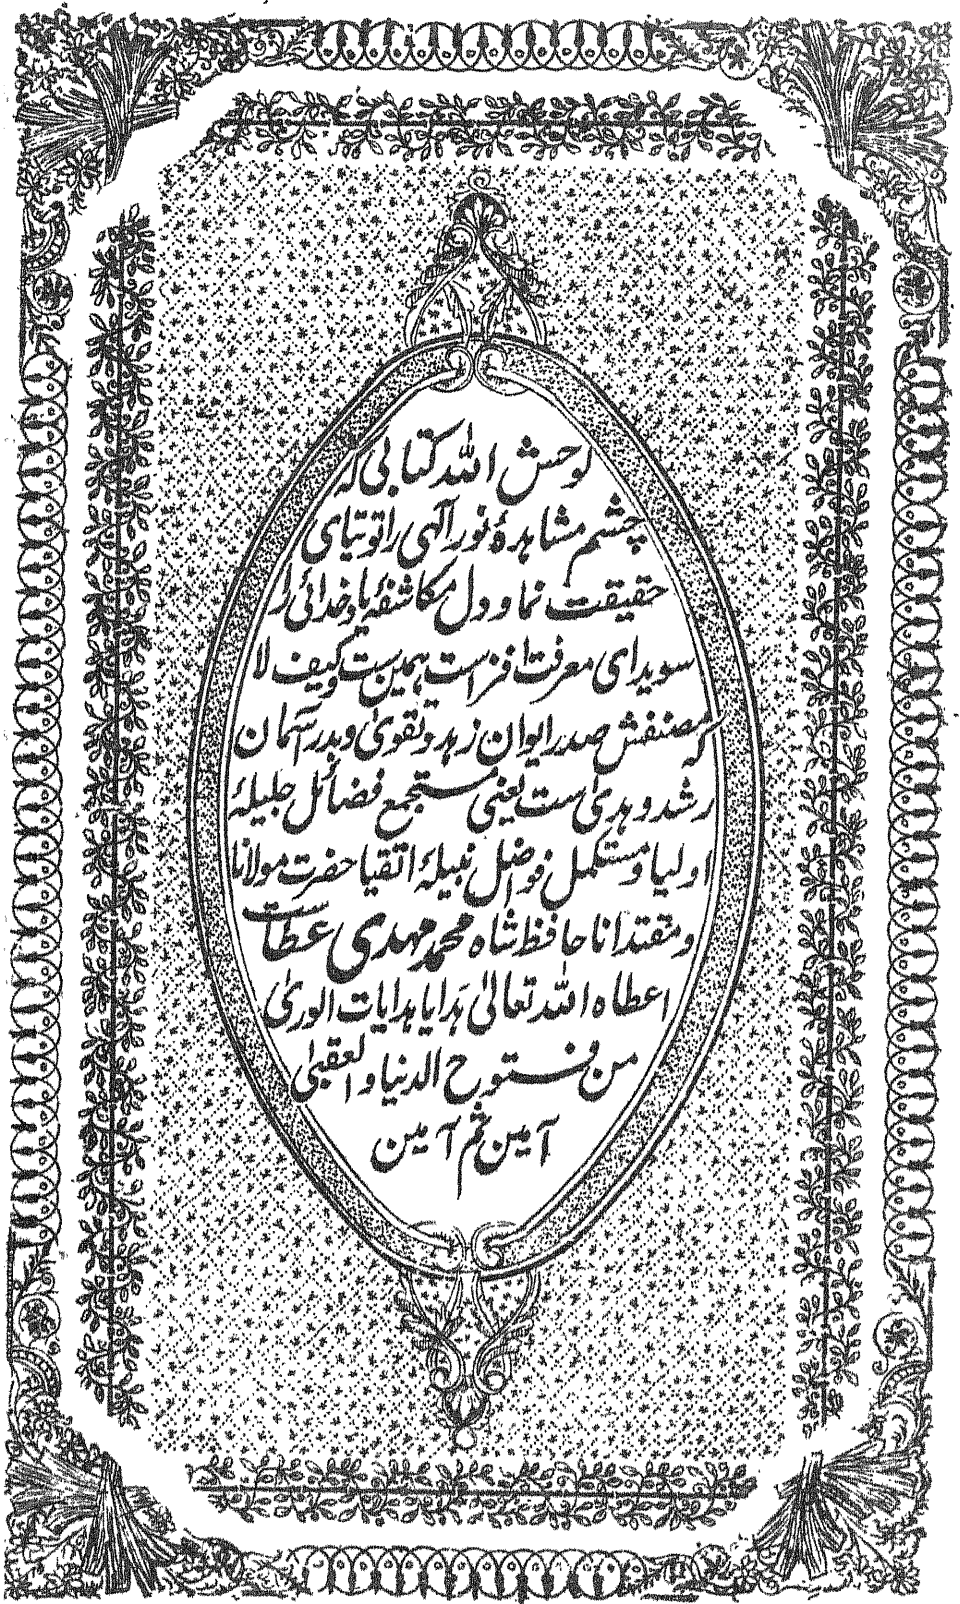 لوحش الله کتابی که
چشم مشاهدهٔ نور آلهی را توتیای
حقیقت نما و دل مکاشفهٔ یاد خدائی را
سویدای معرفت افزاست همین ست وکیف لا
که مصنفش صدر ایوان زهد و تقویٰ و بدر آسمان
رشد و هدیٰ ست یعنی مستجمع فضائل جلیلهٔ
اولیا و مستکمل فواضل نبیلهٔ اتقیا حضرت مولانا
و مقتدانا حافظ شاه محمد مهدی عطاست
اعطاه الله تعالیٰ هدایا هدایات الوریٰ
من فتوح الدنیا و العقبیٰ
آمین ثم آمین